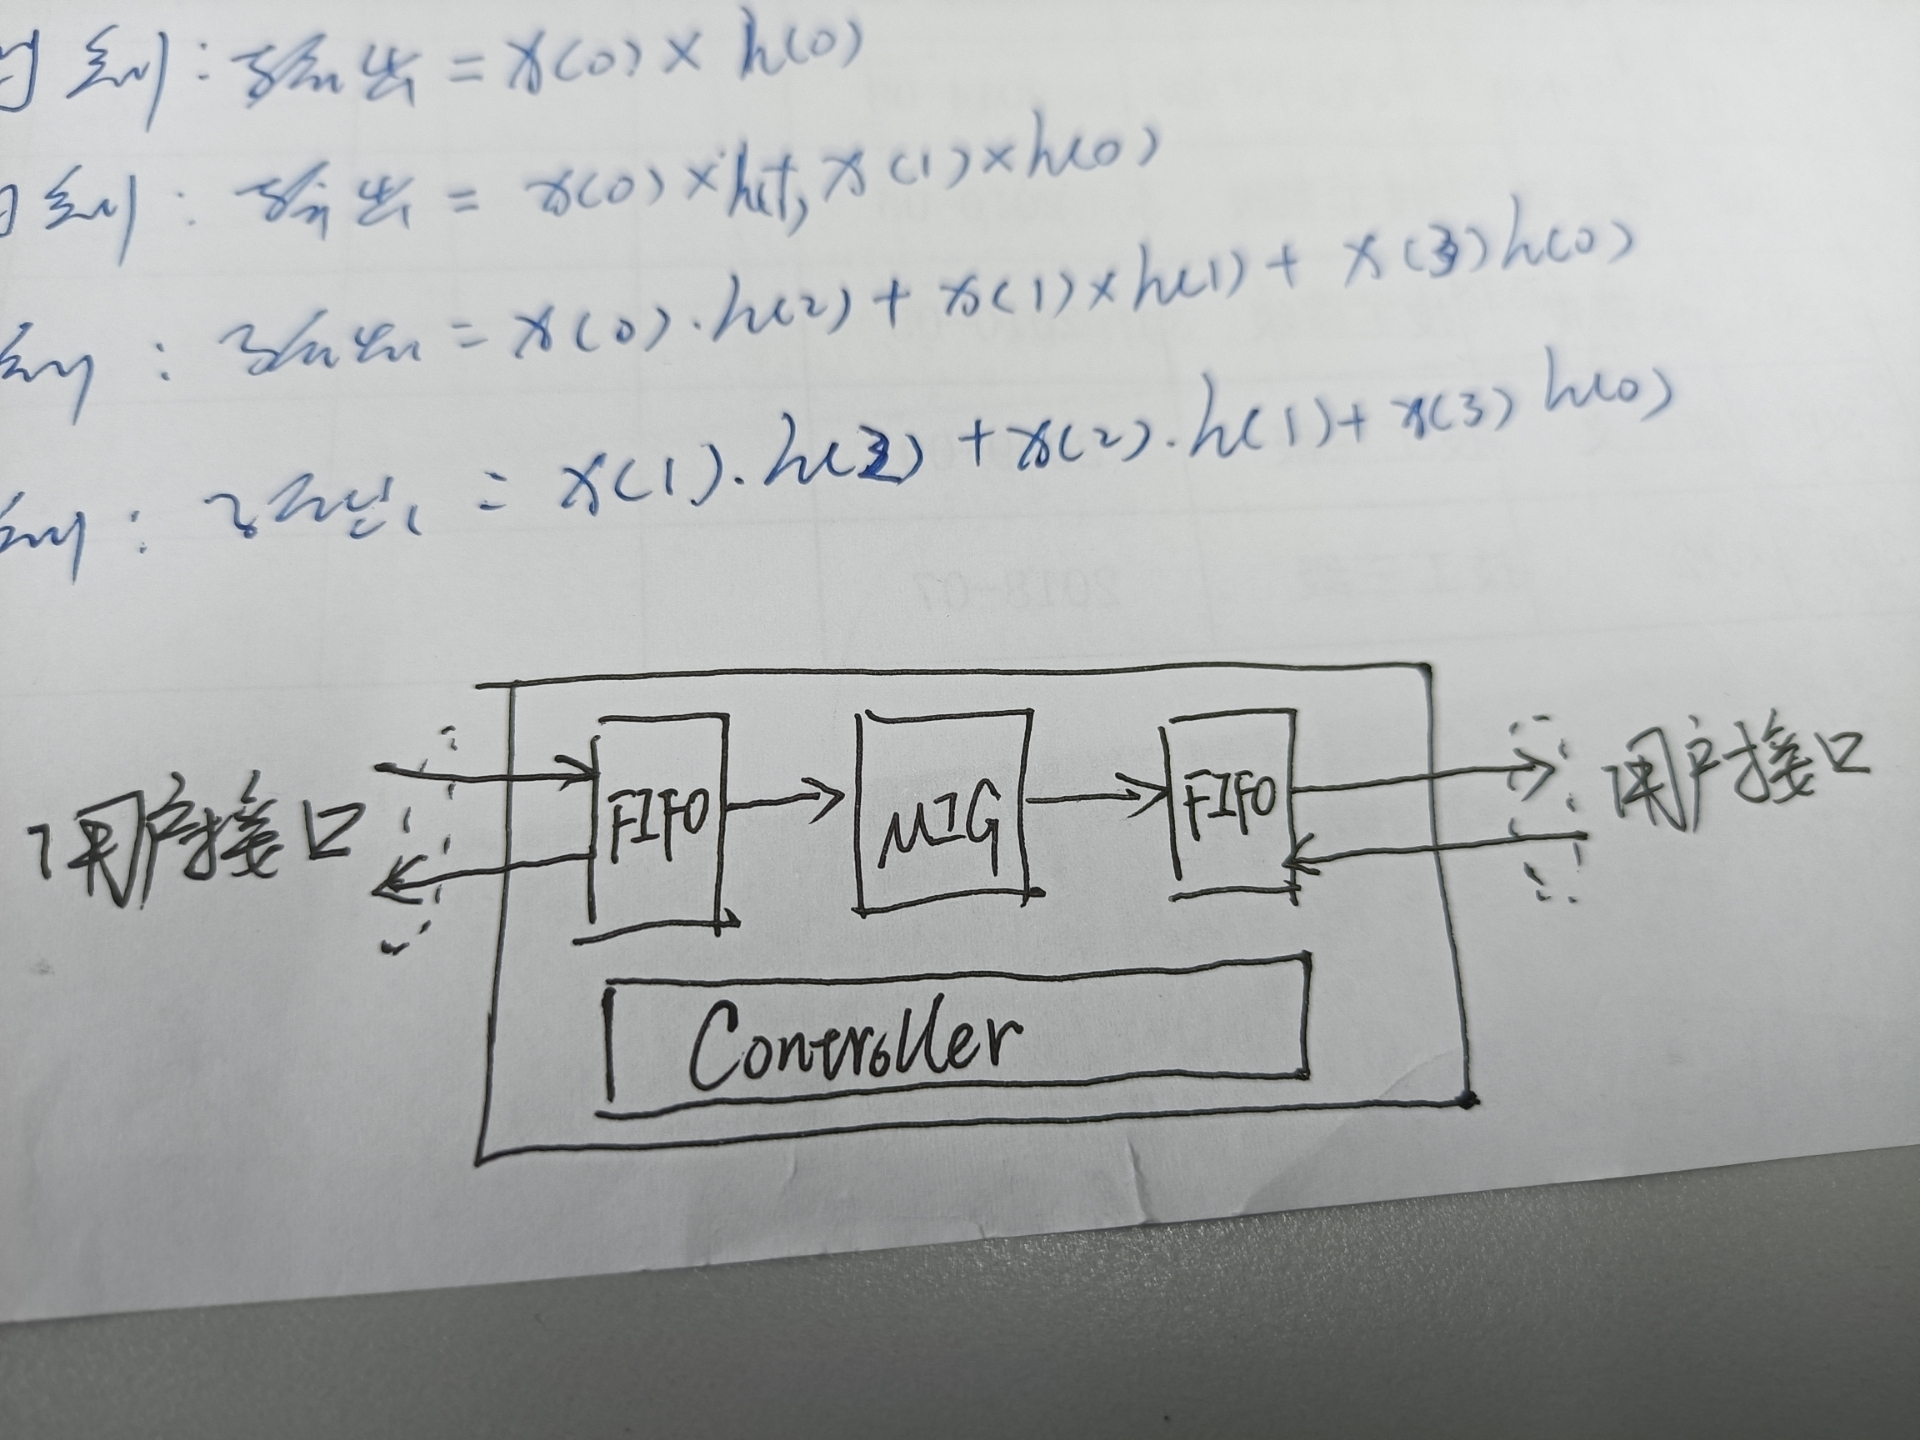 刻:输出 = x(0) × h(0)
刻:输出 = x(0) × x(1) × h(0)
刻:输出 = x(0)·h(2) + x(1) × h(1) + x(3) h(0)
刻:输出 = x(1)·h(2) + x(2)·h(1) + x(3) h(0)
用户接口 FIFO MIG FIFO 用户接口
Controller
2018-07